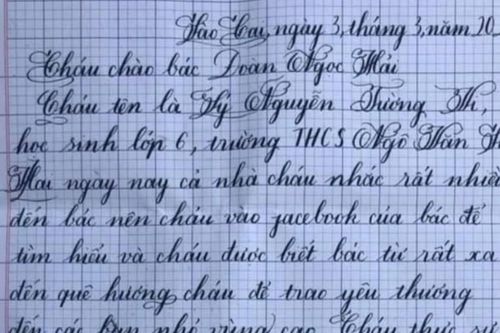 Lào Cai, ngày 3, tháng 3, năm 20
Cháu chào bác Đoàn Ngọc Hải
Cháu tên là Lý Nguyễn Tường
học sinh lớp 6, trường THCS Ngô Văn
Hai ngày nay cả nhà cháu nhắc rất nhiều
đến bác nên cháu vào facebook của bác để
tìm hiểu và cháu được biết bác từ rất xa
đến quê hương cháu để trao yêu thương
đến các bạn nhỏ vùng cao. Cháu thực sự